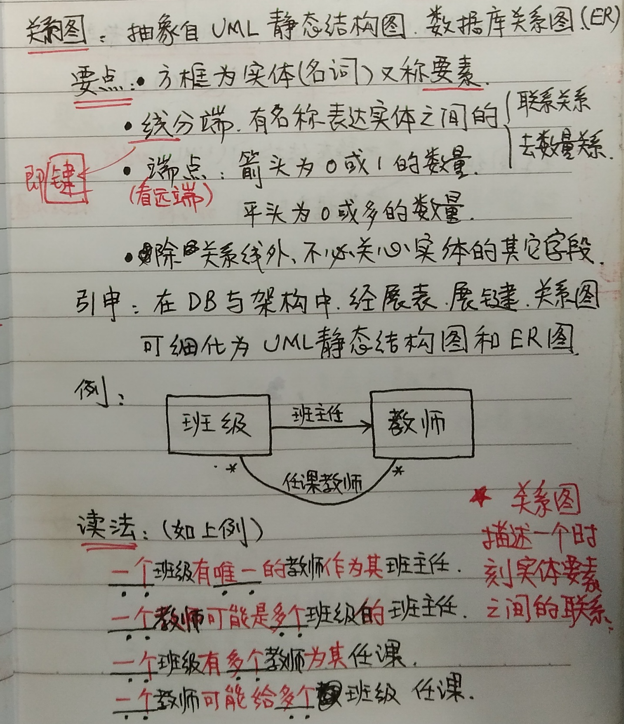 关系图：抽象自 UML 静态结构图．数据库关系图．(ER)
要点：• 方框为实体(名词)又称要素．
• 线分端．有名称表达实体之间的{联系关系
去数量关系．
即键
• 端点：箭头为0或1的数量．
(看远端)
平头为0或多的数量．
• 除关系线外、不必关心实体的其它字段．
引申：在DB与架构中．经展表．展键．关系图
可细化为 UML静态结构图和ER图．
例：
班级
班主任
教师
*
任课教师
*
读法：(如上例)
一个班级有唯一的教师作为其班主任．
一个教师可能是多个班级的班主任．
一个班级有多个教师为其任课．
一个教师可能给多个班级 任课．
★ 关系图
描述一个时
刻实体要素
之间的联系．